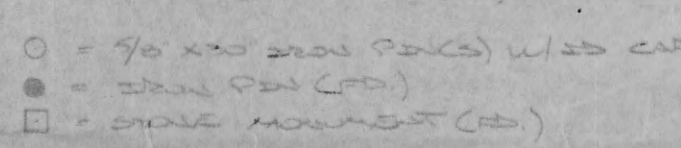 ○ = 5/8 x30 IRON PIN(S) W/ID CAP
● = IRON PIN (FD.)
⊡ = STONE MONUMENT (FD.)